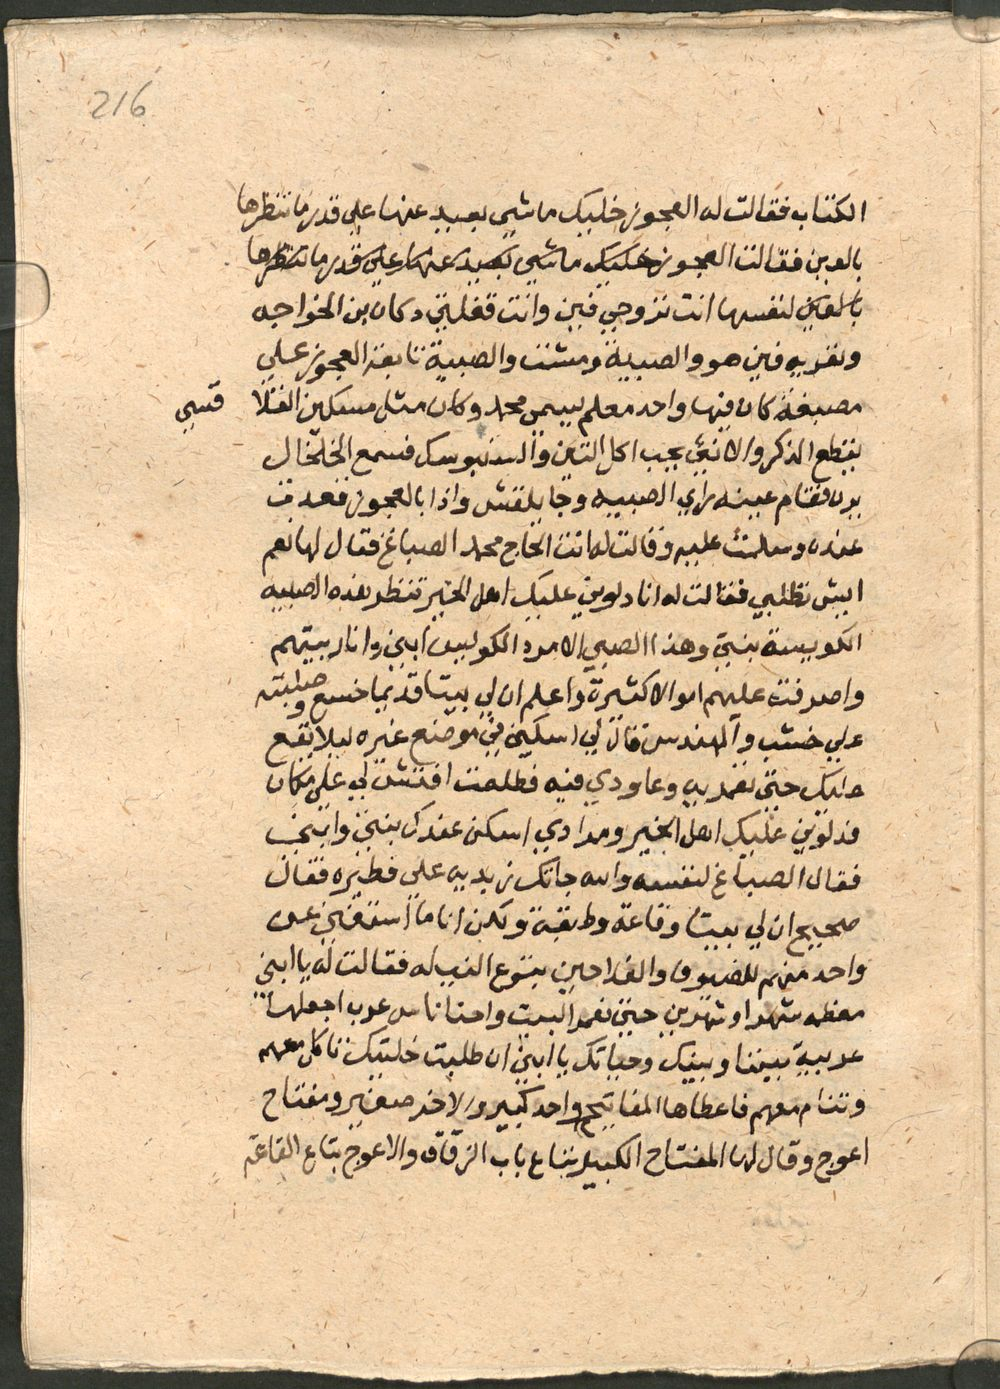 216
الكتاب فقالت له العجوز خليك ماشي بعيد عنها على قدر ما تنظرها
بالعين فقالت العجوز خليك ماشي بعيد عنها على قدر ما تنظرها
بالعين لنفسها انت تروحي فين وانت قفلتي دكان بن الخواجه
وتعريه فين هو والصبية ومشت والصبية تابعة العجوز على
مصبغة كان فيها واحد معلم يسمى محمد وكان مثل سكين القلا قسي
يقطع الذكر والانثى يحب اكل التين والسنبوسك فسمع الخلخال
يرن فقام عينه راي الصبيه وجا يلقش واذا بالعجوز قعدت
عنده وسلمت عليه وقالت له انت الحاج محمد الصباغ فقال لها نعم
ايش تطلبي فقالت له انا دلوني عليك اهل الخير تنظر هذه الصبيه
الكويسة بنتي وهذا الصبي الامرد الكويس ابني وانا ربيتهم
واصرفت عليهم اموالا كثيرة واعلم ان لي بيتا قديما خسع وصلبته
على خشب والمهندس قال لي اسكني في موضع غيره ليلا يقع
عليك حتى تعمريه وعاودي فيه فطلعت افتش لي على مكان
فدلوني عليك اهل الخير ومرادي اسكن عندك بنتي وابني
فقال الصباغ لنفسه والله جاتك زبديه على فطيره فقال
صحيح ان لي بيتا وقاعة وطبقة ولكن انا ما استغني عن
واحد منهم للضيوف والفلاحين بتوع النيله فقالت له يا ابني
معظمه شهر او شهرين حتى نعمر البيت واحنا ناس غرب اجعلها
عربية بيننا وبينك وحياتك يا ابني ان طلبت خليتك تاكل معهم
وتنام معهم فاعطاها المفاتيح واحد كبير والاخر صغير ومفتاح
اعوج وقال لها المفتاح الكبير بتاع باب الزقاق والاعوج بتاع القاعة